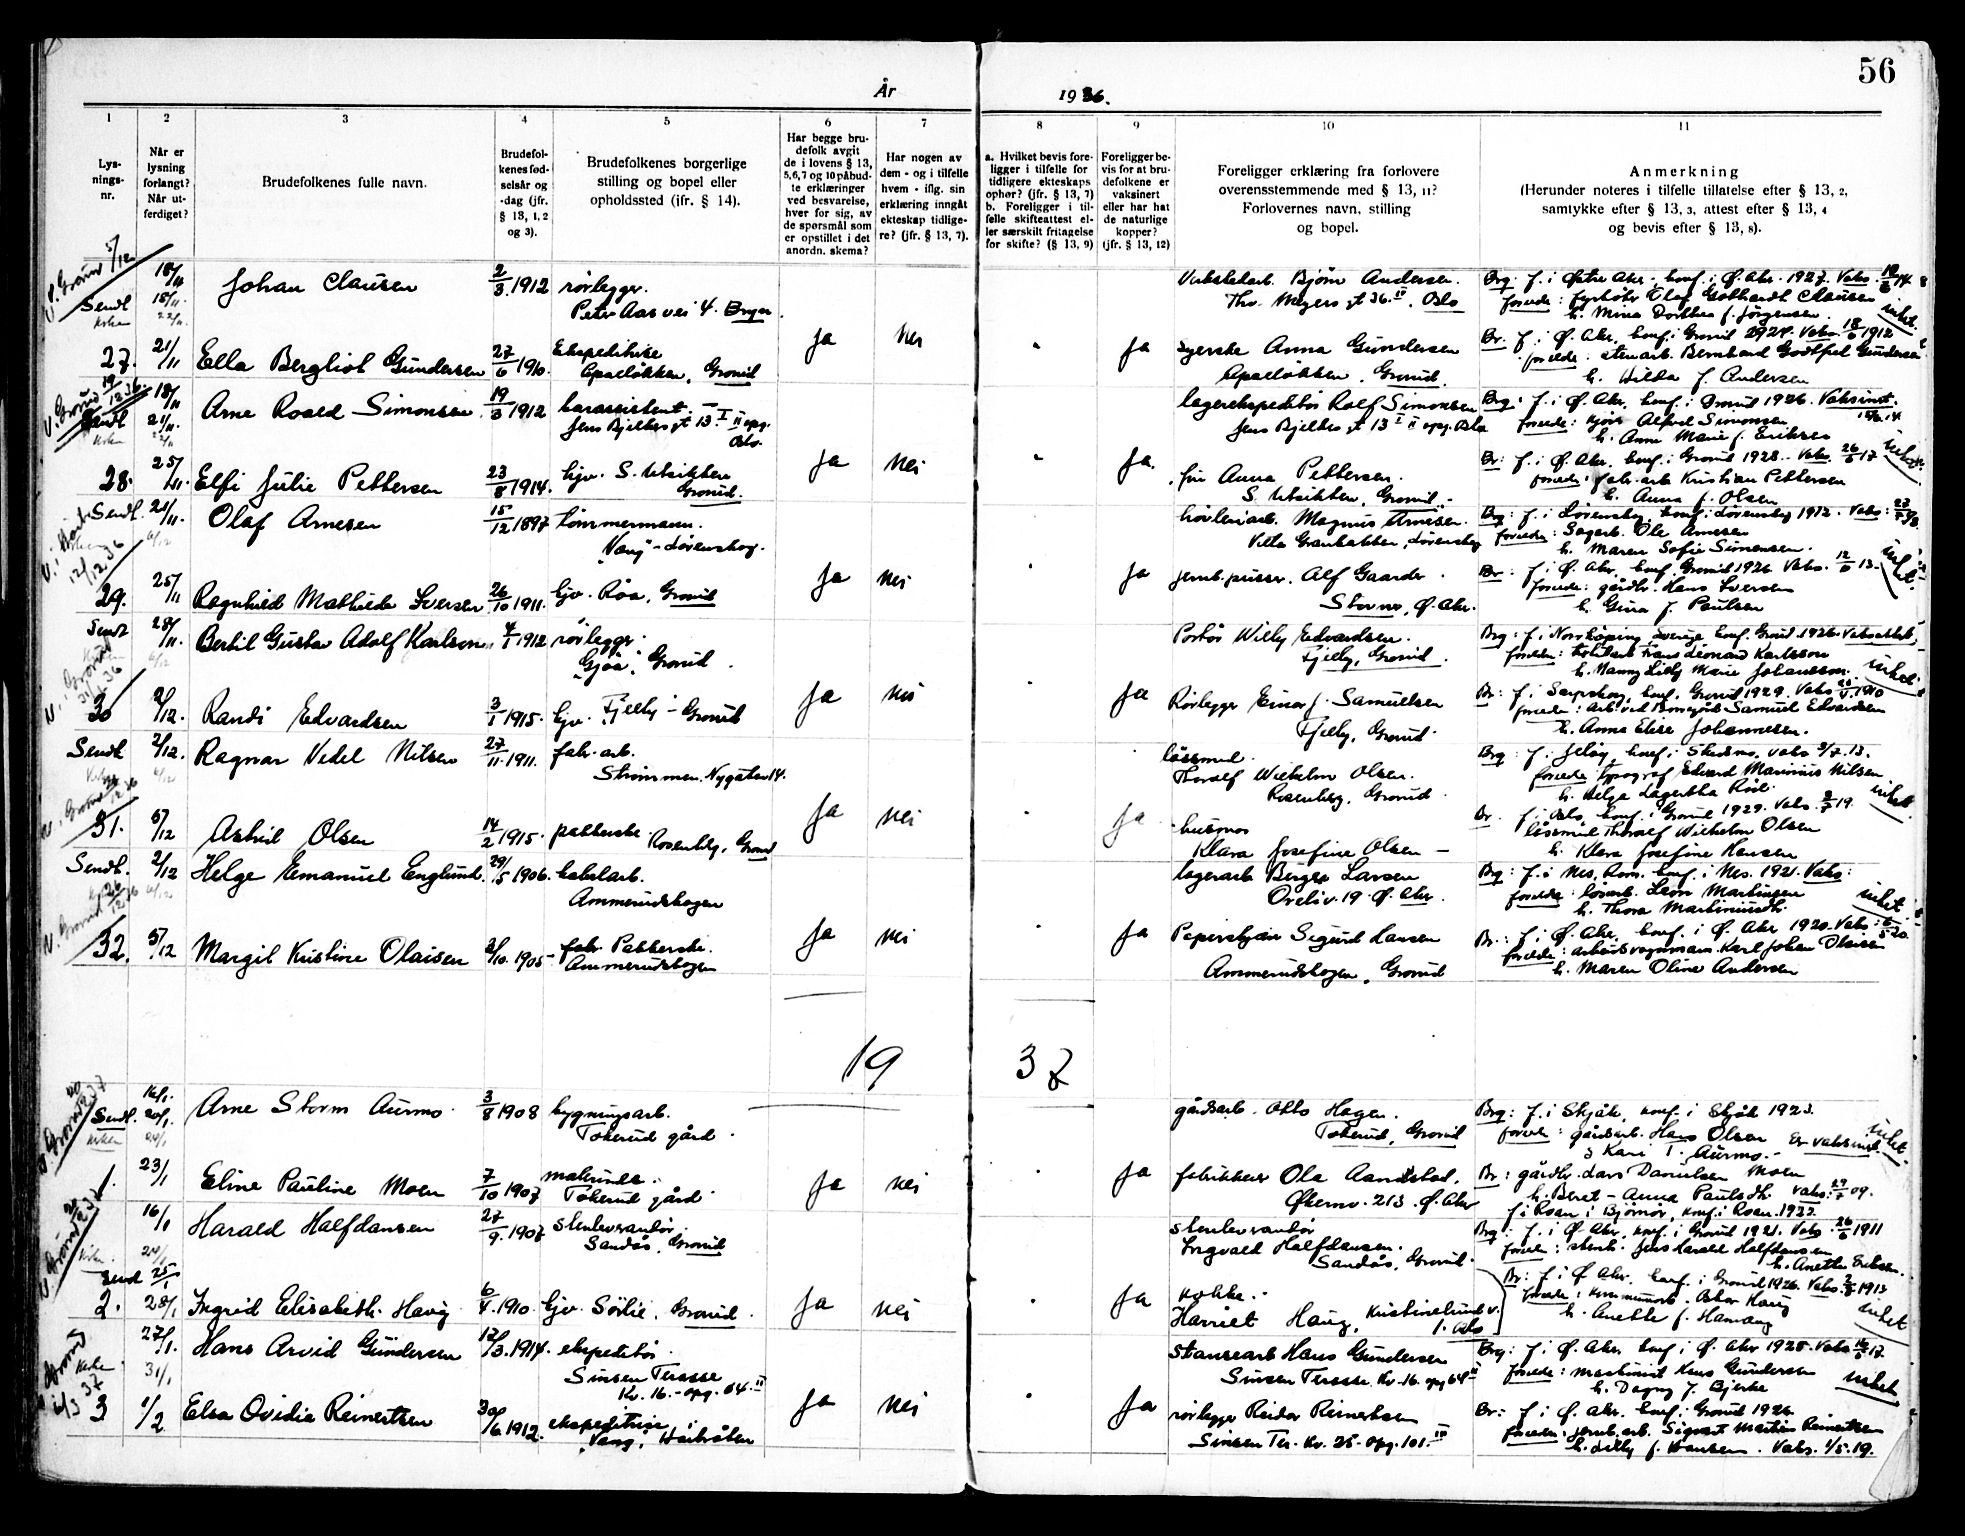 56
År 1936.
1 2 3 4 5 6 7 8 9 10 11
Lys-
nings-
nr.
Når er
lysning
forlangt?
Når ut-
ferdiget?
Brudefolkenes fulle navn.
Brudefol-
kenes fød-
selsår og
-dag (jfr.
§ 13, 1, 2
og 3).
Brudefolkenes borgerlige
stilling og bopel eller
opholdssted (jfr. § 14).
Har begge bru-
defolk avgit
de i lovens § 13,
5,6,7 og 10 påbud-
te erklæringer
ved besvarelse,
hver for sig, av
de spørsmål som
er opstillet i det
anordn. skema?
Har nogen av
dem - og i tilfelle
hvem - iflg. sin
erklæring inngåt
ekteskap tidlige-
re? (jfr. § 13, 7).
a. Hvilket bevis fore-
ligger i tilfelle for
tidligere ekteskaps
ophør? (jfr. § 13, 7)
b. Foreligger i til-
felle skifteattest el-
ler særskilt fritagelse
for skifte? (§ 13, 9)
Foreligger be-
vis for at bru-
defolkene er
vaksinert
eller har hat
de naturlige
kopper?
(jfr. § 13, 12)
Foreligger erklæring fra forlovere
overensstemmende med § 13, 11?
Forlovernes navn, stilling
og bopel.
Anmerkning
(Herunder noteres i tilfelle tillatelse efter § 13, 2,
samtykke efter § 13, 3, attest efter § 13, 4
og bevis efter § 13, 8).
V. Grorud 5/12
Sendt 18/11 Johan Clausen 2/3 1912 rørlegger.
Peter Aas vei 4. Bryn.
Verkstedarb. Bjørn Andersen.
Thv. Meyers gt 36. IV. Oslo
Brg: f. i Østre Aker, konf. i Ø. Aker 1927. Vaks.
forelde: fyrbøter Olaf Gotthardt Clausen
h. Mina Dorthea f. Jørgensen. inhet.
27. 21/11 Ella Bergliot Gundersen 27/6 1910. Ekspeditrise
Apalløkken, Grorud
Ja nei " Ja
syerske Anna Gundersen
Apalløkken, Grorud.
Br: f. i Ø. Aker, konf. i Grorud Vaks. 18/6 1912
forelde: stenarb. Bernhard Godtfred Gundersen
h. Hilda f. Andersen
V. Grorud 19/12 36
Sendt 18/11 Arne Roald Simonsen 19/3 1912 barassistent.
Jens Bjelkes gt 13 I II opg. Oslo.
lagerekspeditør Rolf Simonsen
Jens Bjelkes gt 13 I II opg. Oslo
Brg: f. i Ø. Aker, konf. i Grorud 1926. Vaksinert
forelde: kjører Alfred Simonsen
h. Anna Marie f. Eriksen
28. 25/11 Elfi Julie Pettersen 23/8 1914. hjv. S. Utsikten
Grorud.
Ja nei " Ja.
fru Anna Pettersen.
S. Utsikten, Grorud.
Br: f. i Ø. Aker, konf. i Grorud 1928. Vaks. 26/6 17
forelde: fabr. arb. Kristian Pettersen
h. Anna f. Olsen inhet.
12/12 36
Sendt. 21/11. Olaf Arnesen 15/12 1897 tømmermann.
"Vang" - Lørenskog.
høvleriarb. Magnus Arnesen.
Villa Granbakken, Lørenskog
Brg: f. i Lørenskog, konf. i Lørenskog 1912. Vaks:
forelde: Sagarb. Ole Arnesen
h. Maren Sofie Simensen.
29. 25/11 Ragnhild Mathilde Iversen 26/10 1911. hjv. Røa, Grorud
Ja nei " Ja
jernb.pusser. Alf Gaarder.
Storno, Ø. Aker.
Br: f. i Ø. Aker, konf. Grorud 1926. Vaks. 12/6 13.
forelde: gårdbr. Hans Iversen
h. Gina f. Paulsen inhet.
V. Grorud 31/12 36
Sendt 28/11. Bertil Gustav Adolf Karlson 4/1 1912 rørlegger.
"Gjøa", Grorud.
Portør Willy Edvardsen.
Fjelly, Grorud.
Brg: f. i Norrköping, Sverige konf. Grorud 1926. Vaksattest
forelde: Frans Leonard Karlsson
h. Nanny Lilly Marie Johansson. inhet.
30 2/12. Randi Edvardsen 3/1 1915. hjv. Fjelly - Grorud
Ja nei " Ja
Rørlegger Einar f. Samuelsen
Fjelly, Grorud.
Br: f. i Sarpsborg, konf. Grorud 1929. Vaks.
forelde: arb. ved Samuel Edvardsen
h. Anna Elise Johannesen.
Sendt 2/12. Ragnar Vedel Nilsen 27/11 1911. fabr. arb.
Strømmen, Nygaten 14.
låssmed.
Thoralf Wilhelm Olsen.
Rosenberg, Grorud.
Brg: f. i Jeløy, konf. i Skedsmo, vaks 3/7.13.
forelde typograf Edvard Marinius Nilsen
h. Helga Lagertha Röd. inhet.
31. 5/12 Astrid Olsen 14/2 1915. pakkerske.
Rosenberg, Grorud
Ja nei " Ja
husmor
Klara Josefine Olsen —
Br. f. i Oslo, konf. i Grorud 1929. Vaks. 19.
låssmed Thoralf Wilhelm Olsen
h. Klara Josefine Hansen
V. Grorud 26/12 36
Sendt. 2/12 Helge Emanuel Englund. 29/5 1906. kabelarb.
Ammerudskogen
lagerarb. Birger Larsen
Oreliv. 19. Ø. Aker.
Brg: f. i Nes, Rom. konf. i Nes. 1921. Vaks:
forelde: løsarb. Leon Martinsen
h. Thora Martiniusdtr. inhet.
32. 5/12 Margit Kristine Olaisen 3/10. 1905 - fabr. Pakkerske.
Ammerudskogen
Ja nei " Ja
Sigurd Hansen
Ammerudskogen, Grorud
Br: f. i Ø. Aker, konf. i Ø. Aker 1920. Vaks.
forelde: arbeidsvognmann Karl Johan Olaisen
h. Maren Oline Andersen
19 37
V. Grorud 37
Sendt. 20/1. Arne Storm Aurmo. 3/8 1908 bygningsarb.
Tokerud gård.
gårdsarb. Otto Hagen.
Tokerud, Grorud
Brg: f. i Skjåk, konf. i Skjåk 1923.
forelde: gårdarb. Hans Olsen Er vaksinert.
& Kari T. Aurmo. - inhet.
1. 23/1 Eline Pauline Moen 7/10 1907
Tokerud gård.
Ja nei " Ja
fabrikkeier Ola Aandstad.
Økernv. 213. Ø. Aker
Br: gårdbr. Lars Danielsen Moen
h. Beret - Anna Paulsdtr. vaks. 29/7 09.
f. i Roan i Bjørnør, konf. i Roan. 1922
16/1 Harald Halfdansen 27/9. 1907 stenleverandør.
Sandås, Grorud
stenleverandør
Ingvald Halfdansen.
Sandås, Grorud.
Brg: f. i Ø. Aker, konf. i Grorud 1921. Vaks. 26/6 1911
forelde: stenh. Jens Harald Halfdansen
h. Anette Eriksen.
Sendt 25/1
2. 28/1 Ingrid Elisabeth Haug 6/4. 1910. hjv. Sørlie, Grorud.
Ja nei " Ja
kokke.
Harriet Haug, Kristinelund v.
1. Oslo
Br: f. i Ø Aker, konf. i Grorud 1926. Vaks. 1913
forelde: kommunearb. Oskar Haug
h. Anette f. Hamang inhet
V. Grorud 6/3 37
27/1. Hans Arvid Gundersen 12/3. 1914. ekspeditør.
31/1 Sinsen Terasse
Kv. 16. - opg. 64. II
Stansearb Hans Gundersen
Sinsen Terasse. Kv. 16. opg 64 II
Brg: f. i Ø. Aker, konf. i Ø. Aker 1928. Vaks. 17.
forelde: maskinist Hans Gundersen
h. Dagny f. Bjerke inhet
3 1/2 Elsa Ovidia Reinertsen 30/6. 1912. ekspeditrise
"Vang", Høibråten
Ja nei " Ja
rørlegger Reidar Reinertsen
Sinsen Ter. Kv. 25. opg. 101. III
Br: f. i Ø. Aker, konf. i Grorud 1926
forelde: jernb. arb. Sigvart Martin Reinertsen
h. Lilly f. Hansen. Vaks. 1/5. 19.